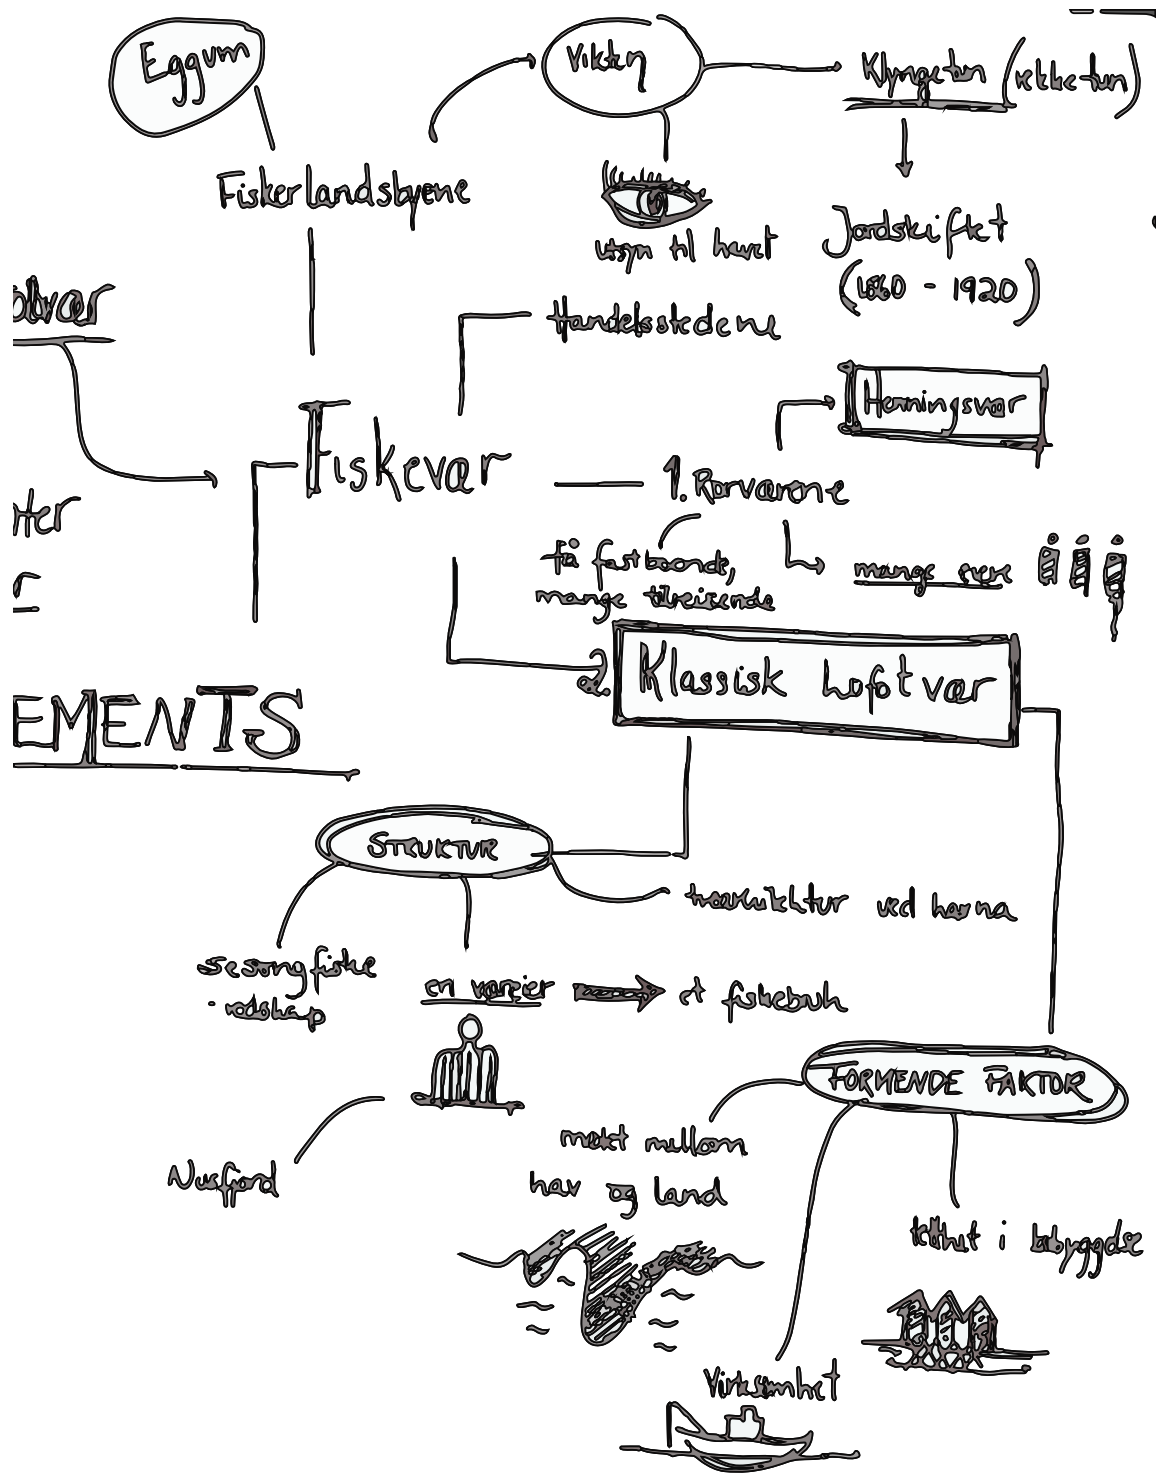 Eggum
Vikten
Klyngetun (rekketun)
Fiskerlandsbyene
utsyn til havet
Jordskiftet
(1860 - 1920)
Handelsstedene
Henningsvær
Fiskevær
1. Rorværene
få fastboende,
mange tilreisende
mange eiere
2. Klassisk Lofotvær
EMENTS
STRUKTUR
ved havna
sesongfiske
- redskap
en væreier
et fiskebruk
FORMENDE FAKTOR
møkt mellom
hav og land
Nusfjord
tetthet i bebyggelse
Virksomhet